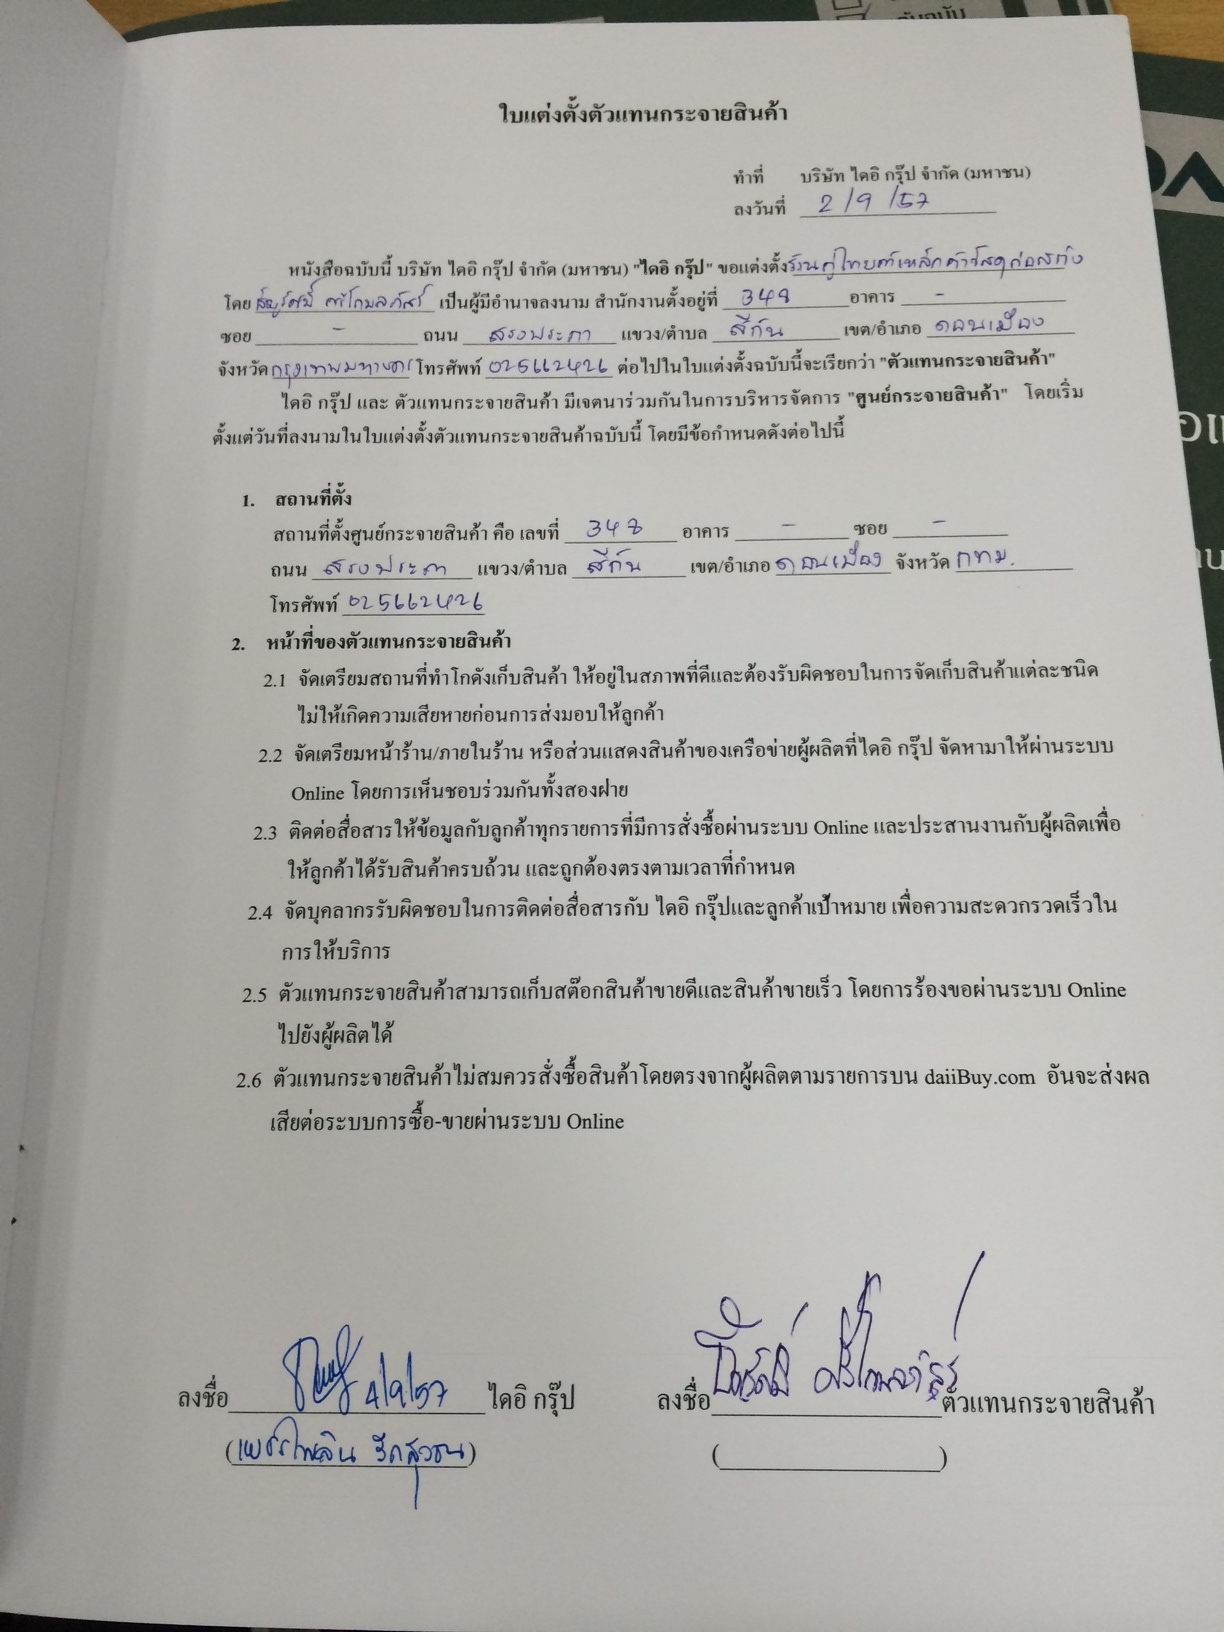 ใบแต่งตั้งตัวแทนกระจายสินค้า
ทำที่ บริษัท ไดอิ กรุ๊ป จำกัด (มหาชน)
ลงวันที่ 2/9/57
หนังสือฉบับนี้ บริษัท ไดอิ กรุ๊ป จำกัด (มหาชน) "ไดอิ กรุ๊ป" ขอแต่งตั้ง
โดย เป็นผู้มีอำนาจลงนาม สำนักงานตั้งอยู่ที่ 348 อาคาร -
ซอย - ถนน สรงประภา แขวง/ตำบล สีกัน เขต/อำเภอ ดอนเมือง
จังหวัด กรุงเทพมหานคร โทรศัพท์ 025662426 ต่อไปในใบแต่งตั้งฉบับนี้จะเรียกว่า "ตัวแทนกระจายสินค้า"
ไดอิ กรุ๊ป และ ตัวแทนกระจายสินค้า มีเจตนาร่วมกันในการบริหารจัดการ "ศูนย์กระจายสินค้า" โดยเริ่ม
ตั้งแต่วันที่ลงนามในใบแต่งตั้งตัวแทนกระจายสินค้าฉบับนี้ โดยมีข้อกำหนดดังต่อไปนี้
1. สถานที่ตั้ง
สถานที่ตั้งศูนย์กระจายสินค้า คือ เลขที่ 348 อาคาร - ซอย -
ถนน สรงประภา แขวง/ตำบล สีกัน เขต/อำเภอ ดอนเมือง จังหวัด กทม.
โทรศัพท์ 025662426
2. หน้าที่ของตัวแทนกระจายสินค้า
2.1 จัดเตรียมสถานที่ทำโกดังเก็บสินค้า ให้อยู่ในสภาพที่ดีและต้องรับผิดชอบในการจัดเก็บสินค้าแต่ละชนิด
ไม่ให้เกิดความเสียหายก่อนการส่งมอบให้ลูกค้า
2.2 จัดเตรียมหน้าร้าน/ภายในร้าน หรือส่วนแสดงสินค้าของเครือข่ายผู้ผลิตที่ไดอิ กรุ๊ป จัดหามาให้ผ่านระบบ
Online โดยการเห็นชอบร่วมกันทั้งสองฝ่าย
2.3 ติดต่อสื่อสารให้ข้อมูลกับลูกค้าทุกรายการที่มีการสั่งซื้อผ่านระบบ Online และประสานงานกับผู้ผลิตเพื่อ
ให้ลูกค้าได้รับสินค้าครบถ้วน และถูกต้องตรงตามเวลาที่กำหนด
2.4 จัดบุคลากรรับผิดชอบในการติดต่อสื่อสารกับ ไดอิ กรุ๊ปและลูกค้าเป้าหมาย เพื่อความสะดวกรวดเร็วใน
การให้บริการ
2.5 ตัวแทนกระจายสินค้าสามารถเก็บสต๊อกสินค้าขายดีและสินค้าขายเร็ว โดยการร้องขอผ่านระบบ Online
ไปยังผู้ผลิตได้
2.6 ตัวแทนกระจายสินค้าไม่สมควรสั่งซื้อสินค้าโดยตรงจากผู้ผลิตตามรายการบน daiiBuy.com อันจะส่งผล
เสียต่อระบบการซื้อ-ขายผ่านระบบ Online
ลงชื่อ 4/9/57 ไดอิ กรุ๊ป ลงชื่อ ตัวแทนกระจายสินค้า